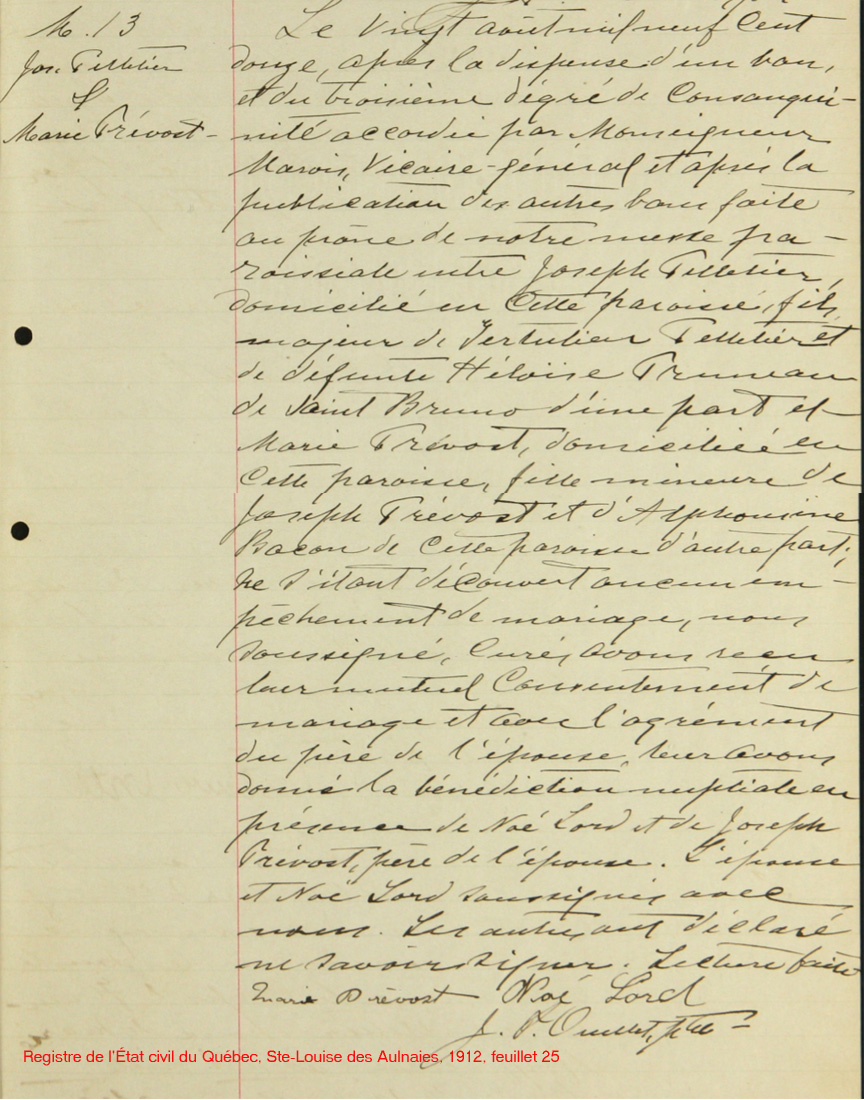 M. 13
Jos. Pelletier
&
Marie Prévost -
Le vingt août mil neuf cent
douze, après la dispense d'un ban,
et du troisième dégré de Consangui-
nité accordée par Monseigneur
Marois, Vicaire-général et après la
publication des autres bans faite
au prône de notre messe pa-
roissiale entre Joseph Pelletier,
domicilié en cette paroisse, fils
majeur de Tertulien Pelletier et
de défunte Héloïse Pruneau
de Saint Bruno d'une part et
Marie Prévost, domiciliée en
Cette paroisse, fille mineure de
Joseph Prévost et d'Alphonsine
Bacon de Cette paroisse d'autre part;
ne s'étant découvert aucun em-
pêchement de mariage, nous
soussigné, Curé, avons reçu
leur mutuel Consentement de
mariage et avec l'agrément
du père de l'épouse, leur avons
donné la bénédiction nuptiale en
présence de Noé Lord et de Joseph
Prévost, père de l'épouse. L'épouse
et Noé Lord soussignés avec
nous. Les autres ont déclaré
ne savoir signer. Lecture faite
Marie Prévost Noé Lord
J. P. Ouellet, ptre -
Registre de l'État civil du Québec, Ste-Louise des Aulnaies, 1912, feuillet 25